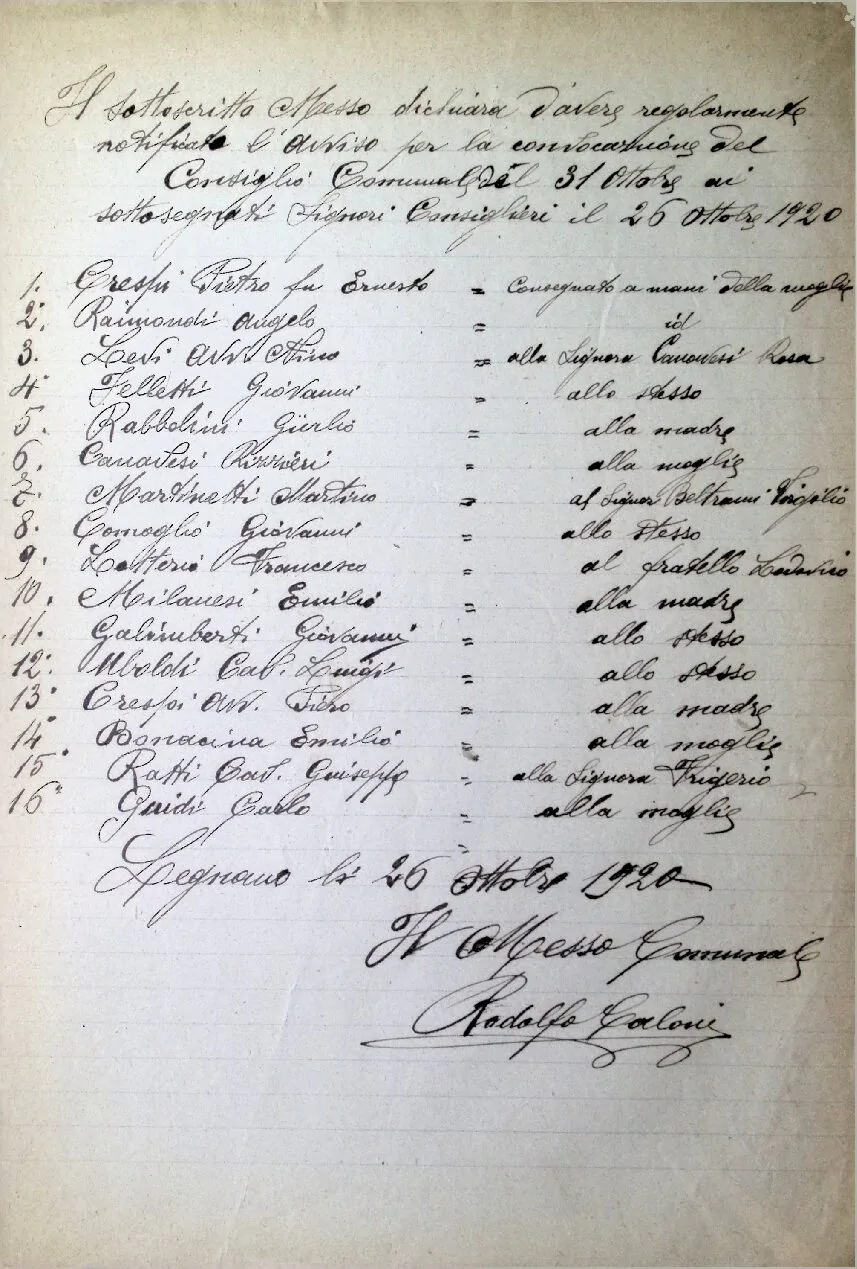 Il sottoscritto Messo dichiara d'avere regolarmente
notificato l'avviso per la convocazione del
Consiglio Comunale del 31 Ottobre ai
sottosegnati Signori Consiglieri il 26 Ottobre 1920
1. Crespi Pietro fu Ernesto = Consegnato a mani della moglie
2. Raimondi Angelo = id
3. Levi Avv. Nino = alla Signora Canavesi Rosa
4. Felletti Giovanni = allo stesso
5. Rabbolini Giulio = alla madre
6. Canavesi Rizzieri = alla moglie
7. Martinetti Martino = al Signor Beltrami Virgilio
8. Comoglio Giovanni = allo stesso
9. Lotterio Francesco = al fratello Lodovico
10. Milanesi Emilio = alla madre
11. Galimberti Giovanni = allo stesso
12. Uboldi Cav. Luigi = allo stesso
13. Crespi Avv. Piero = alla madre
14. Bonacina Emilio = alla moglie
15. Ratti Cav. Guiseppe = alla Signora Frigerio
16. Guidi Carlo = alla moglie
Legnano li 26 Ottobre 1920
Il Messo Comunale
Rodolfo Caloni